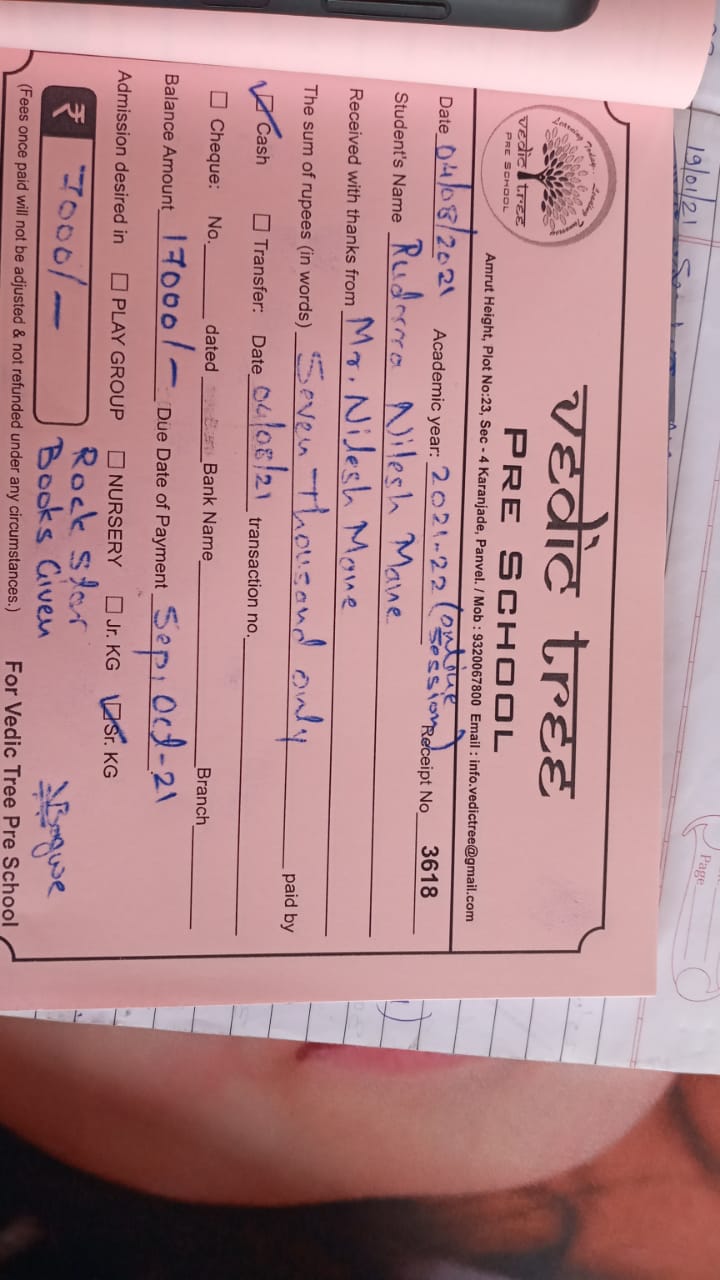 vedic tree
PRE SCHOOL
vedic tree
PRE SCHOOL
Amrut Height, Plot No:23, Sec - 4 Karanjade, Panvel. / Mob : 9320067800 Email : info.vedictree@gmail.com
Date 04/08/2021 Academic year: 2021-22 (online session) Receipt No 3618
Student's Name Rudra Nilesh Mane
Received with thanks from Mr. Nilesh Mane
The sum of rupees (in words) Seven Thousand only paid by
Cash Transfer: Date 04/08/21 transaction no.
Cheque: No. dated Bank Name Branch
Balance Amount 17000/- Due Date of Payment Sep, Oct-21
Admission desired in PLAY GROUP NURSERY Jr. KG Sr. KG
₹ 7000/- Rock Star
Books Given
(Fees once paid will not be adjusted & not refunded under any circumstances.) For Vedic Tree Pre School
19/01/21
Page